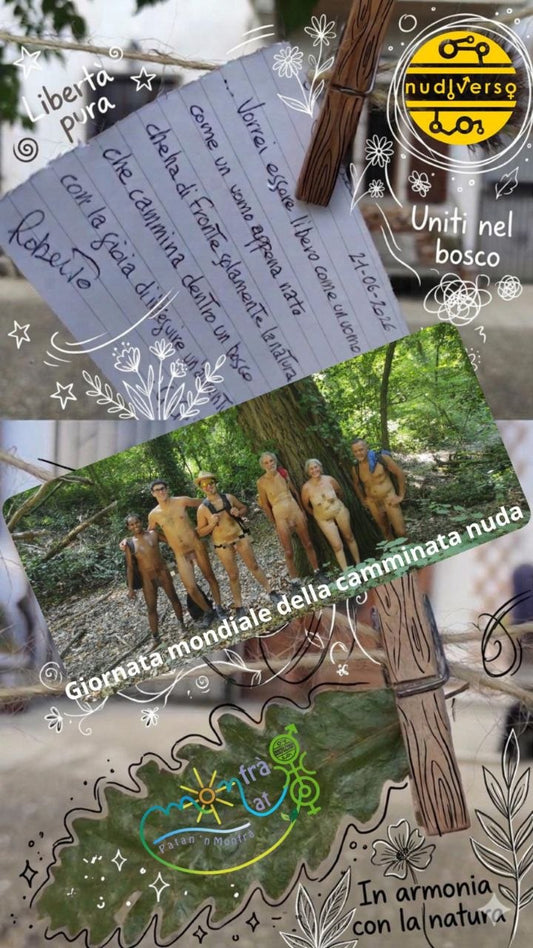 Libertà
pura
nudiverso
Uniti nel
bosco
21-06-2026
... Vorrei essere libero come un uomo
come un uomo appena nato
che ha di fronte solamente la natura
che cammina dentro un bosco
con la gioia di inseguire un
Roberto
Giornata mondiale della camminata nuda
fra
at
Patan 'n Monfrà
In armonia
con la natura